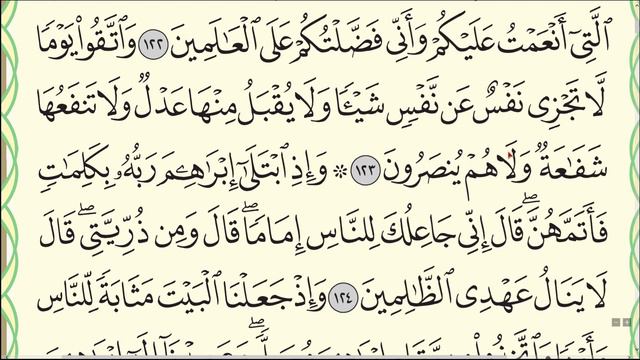 ٱلَّتِىٓ أَنْعَمْتُ عَلَيْكُمْ وَأَنِّى فَضَّلْتُكُمْ عَلَى ٱلْعَـٰلَمِينَ ١٢٢ وَٱتَّقُوا۟ يَوْمًا
لَّا تَجْزِى نَفْسٌ عَن نَّفْسٍ شَيْـًٔا وَلَا يُقْبَلُ مِنْهَا عَدْلٌ وَلَا تَنفَعُهَا
شَفَـٰعَةٌ وَلَا هُمْ يُنصَرُونَ ١٢٣ ۞ وَإِذِ ٱبْتَلَىٰٓ إِبْرَٰهِـۧمَ رَبُّهُۥ بِكَلِمَـٰتٍ
فَأَتَمَّهُنَّ ۖ قَالَ إِنِّى جَاعِلُكَ لِلنَّاسِ إِمَامًا ۖ قَالَ وَمِن ذُرِّيَّتِى ۖ قَالَ
لَا يَنَالُ عَهْدِى ٱلظَّـٰلِمِينَ ١٢٤ وَإِذْ جَعَلْنَا ٱلْبَيْتَ مَثَابَةً لِّلنَّاسِ